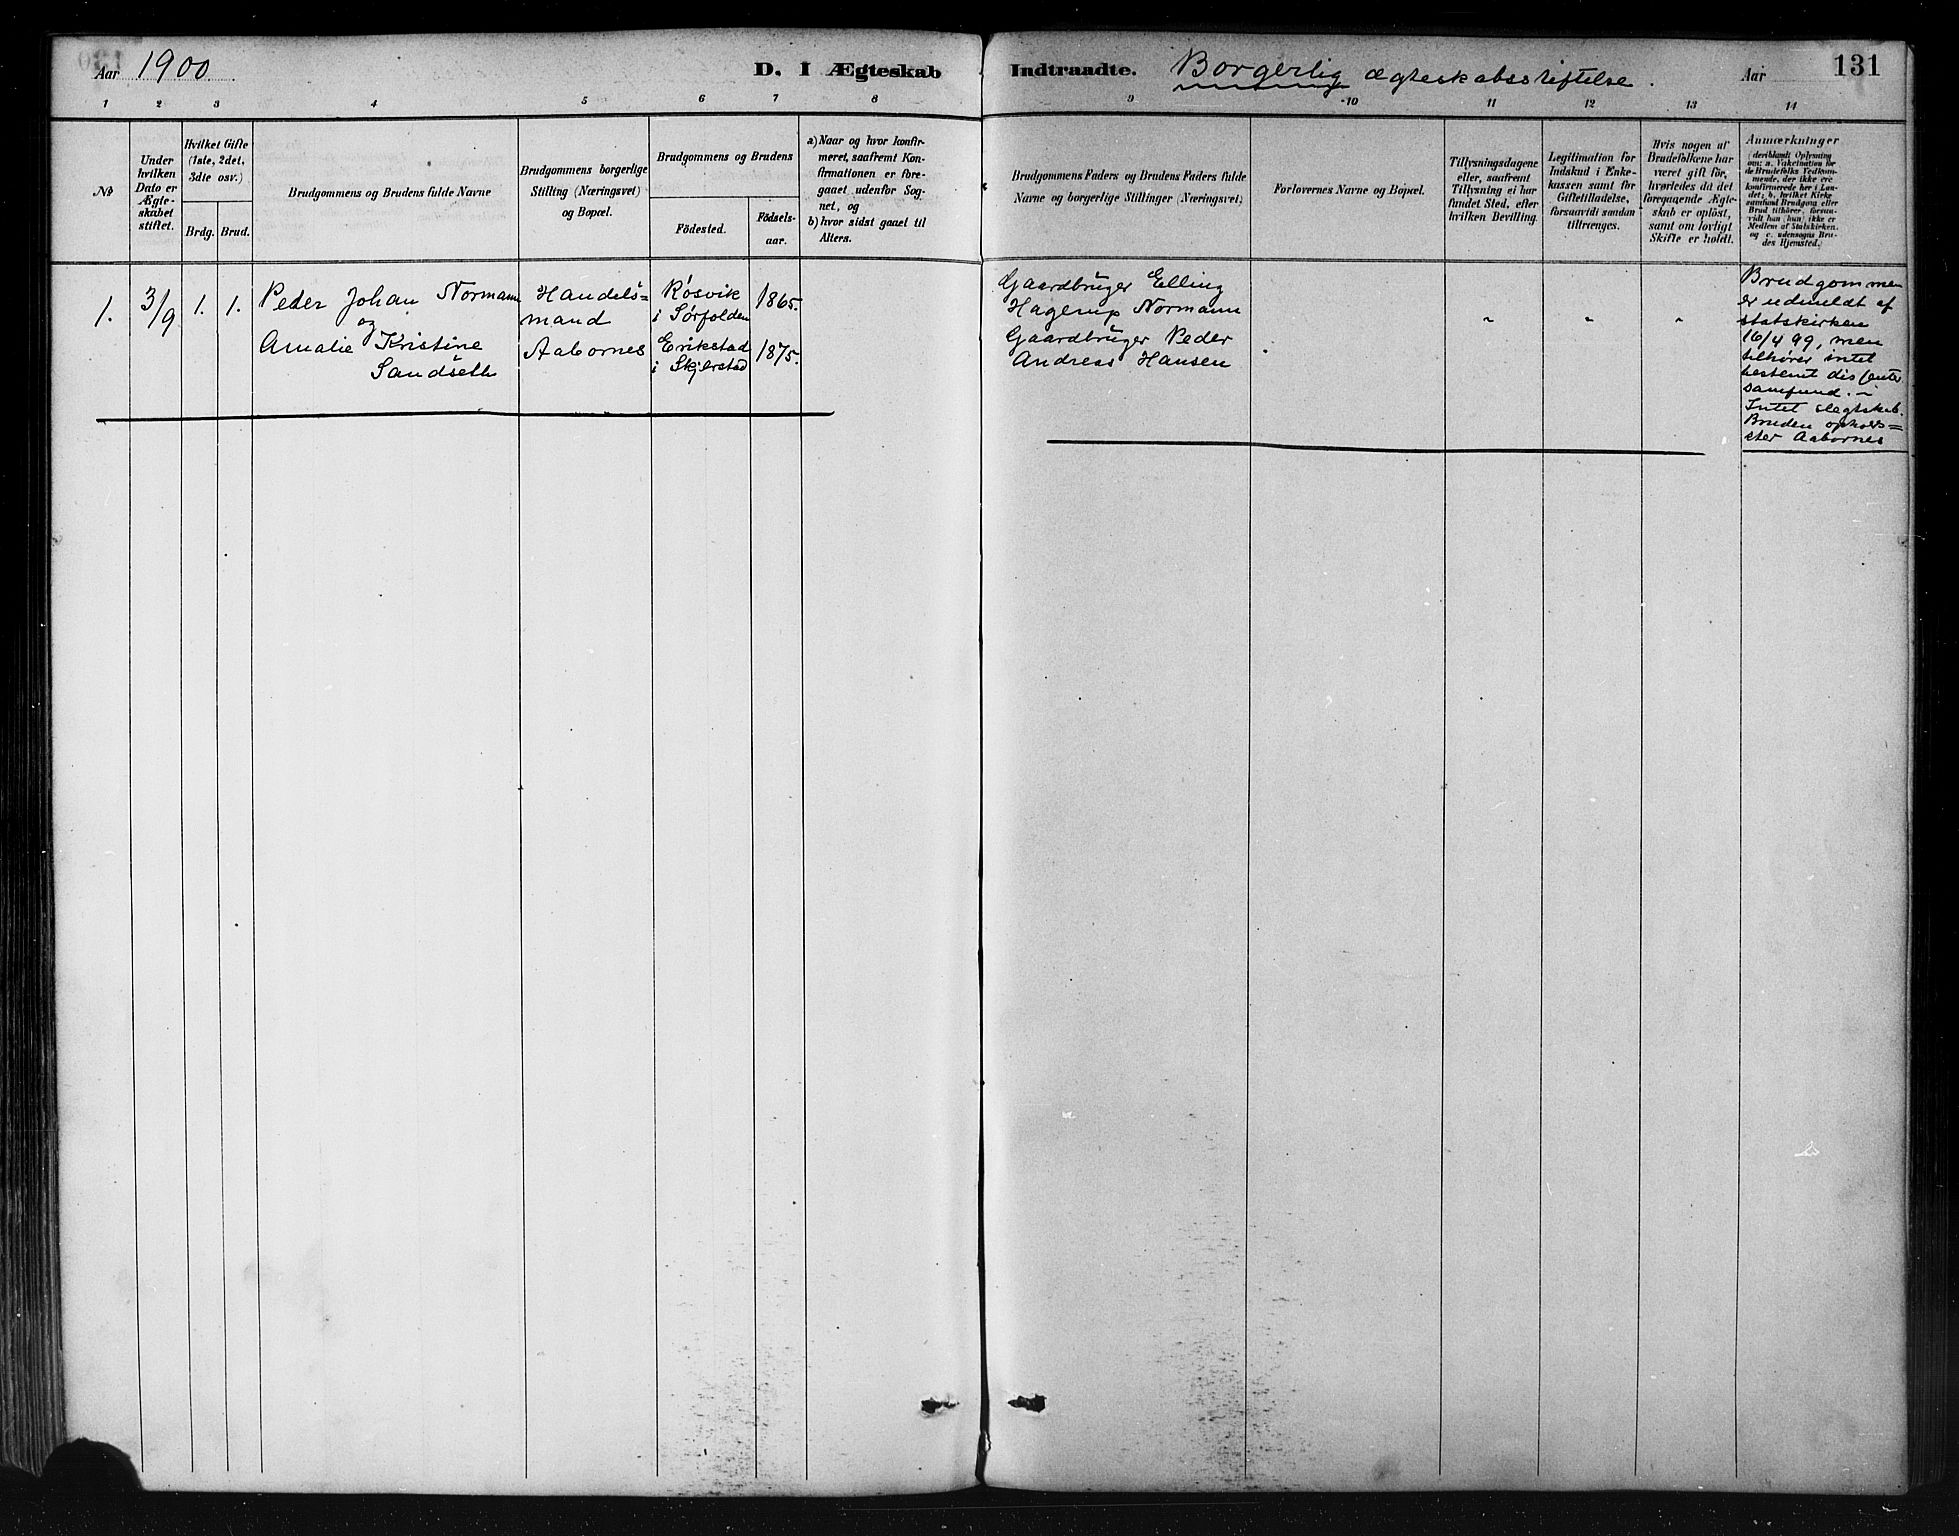 Aar 1900
D. I Ægteskab Indtraadte.
Borgerlig ægteskabsstiftelse.
Aar
131
1 2 3 4 5 6 7 8 9 10 11 12 13 14
No
Under
hvilken
Dato er
Ægte-
skabet
stiftet.
Hvilket Gifte
(1ste, 2det,
3die osv.)
Brdg. Brud.
Brudgommens og Brudens fulde Navne
Brudgommens borgerlige
Stilling (Næringsvei)
og Bopæl.
Brudgommens og Brudens
Födested.
Födsels-
aar.
a) Naar og hvor konfir-
meret, saafremt Kon-
firmationen er fore-
gaaet udenfor Sog-
net, og
b) hvor sidst gaaet til
Alters.
Brudgommens Faders og Brudens Faders fulde
Navne og borgerlige Stillinger (Næringsvei)
Forlovernes Navne og Bopæl.
Tillysningsdagene
eller, saafremt
Tillysning ei har
fundet Sted, efter
hvilken Bevilling.
Legitimation for
Indskud i Enke-
kassen samt for
Giftetilladelse,
forsaavidt saadan
tiltrænges.
Hvis nogen af
Brudefolkene har
været gift för,
hvorledes da det
foregaaende Ægte-
skab er oplöst,
samt om lovligt
Skifte er holdt.
Anmærkninger
(deriblandt Oplysning
om: a. Vakcination för
de Brudefolks Vedkom-
mende, der ikke ere
konfirmerede her i Lan-
det; b. hvilket Kirke
samfund Brudgom eller
Brud tilhörer, forsaa-
vidt han (hun) ikke er
Medlem af Statskirken,
og c. udensogns Bru-
des Hjemsted.)
1. 3/9 1. 1.
Peder Johan Normann
og
Amalie Kristine
Sandseth
Handels=
mand
Aabornes
Røsvik
i Sørfolden
Erikstad
i Skjerstad
1865.
1875.
Gaardbruger Elling
Hagerup Normann
Gaardbruger Peder
Andreas Hansen
" " "
Brudgommen
er udmeldt af
statskirken
16/4 99, men
tilhører intet
bestemt dissenter
samfund. –
Intet slegtskab.
Bruden ophold=
eter Aabornes